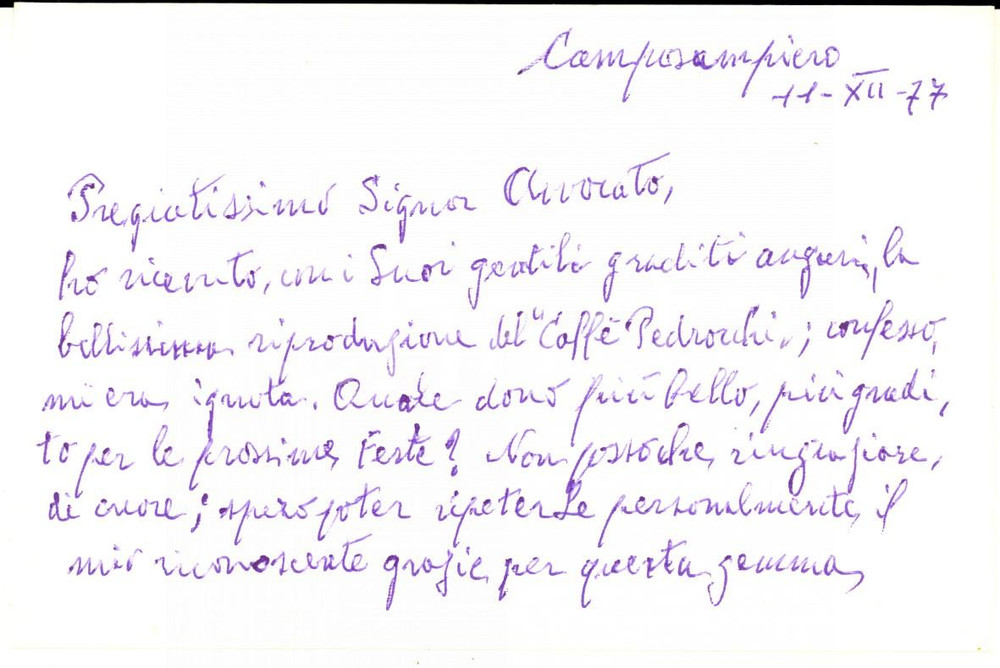 Camposampiero
11-XII-77
Pregiatissimo Signor Avvocato,
ho ricevuto, con i Suoi gentili graditi auguri, la
bellissima riproduzione del "Caffè Pedrocchi"; confesso,
mi era ignota. Quale dono più bello, più gradi,
to per le prossime Feste? Non posso che ringraziare,
di cuore; spero poter ripeterLe personalmente, il
mio riconoscente grazie, per questa gemma,